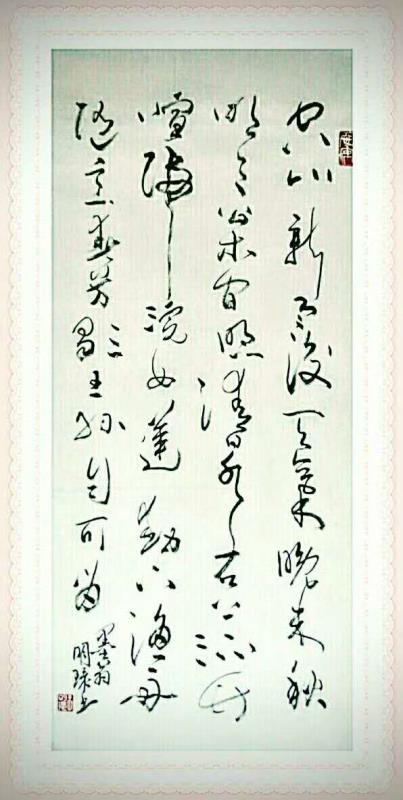 空山新雨後天氣晚来秋
明月松間照清泉石上流
竹喧歸浣女蓮動下漁舟
隨意春芳歇王孫自可留